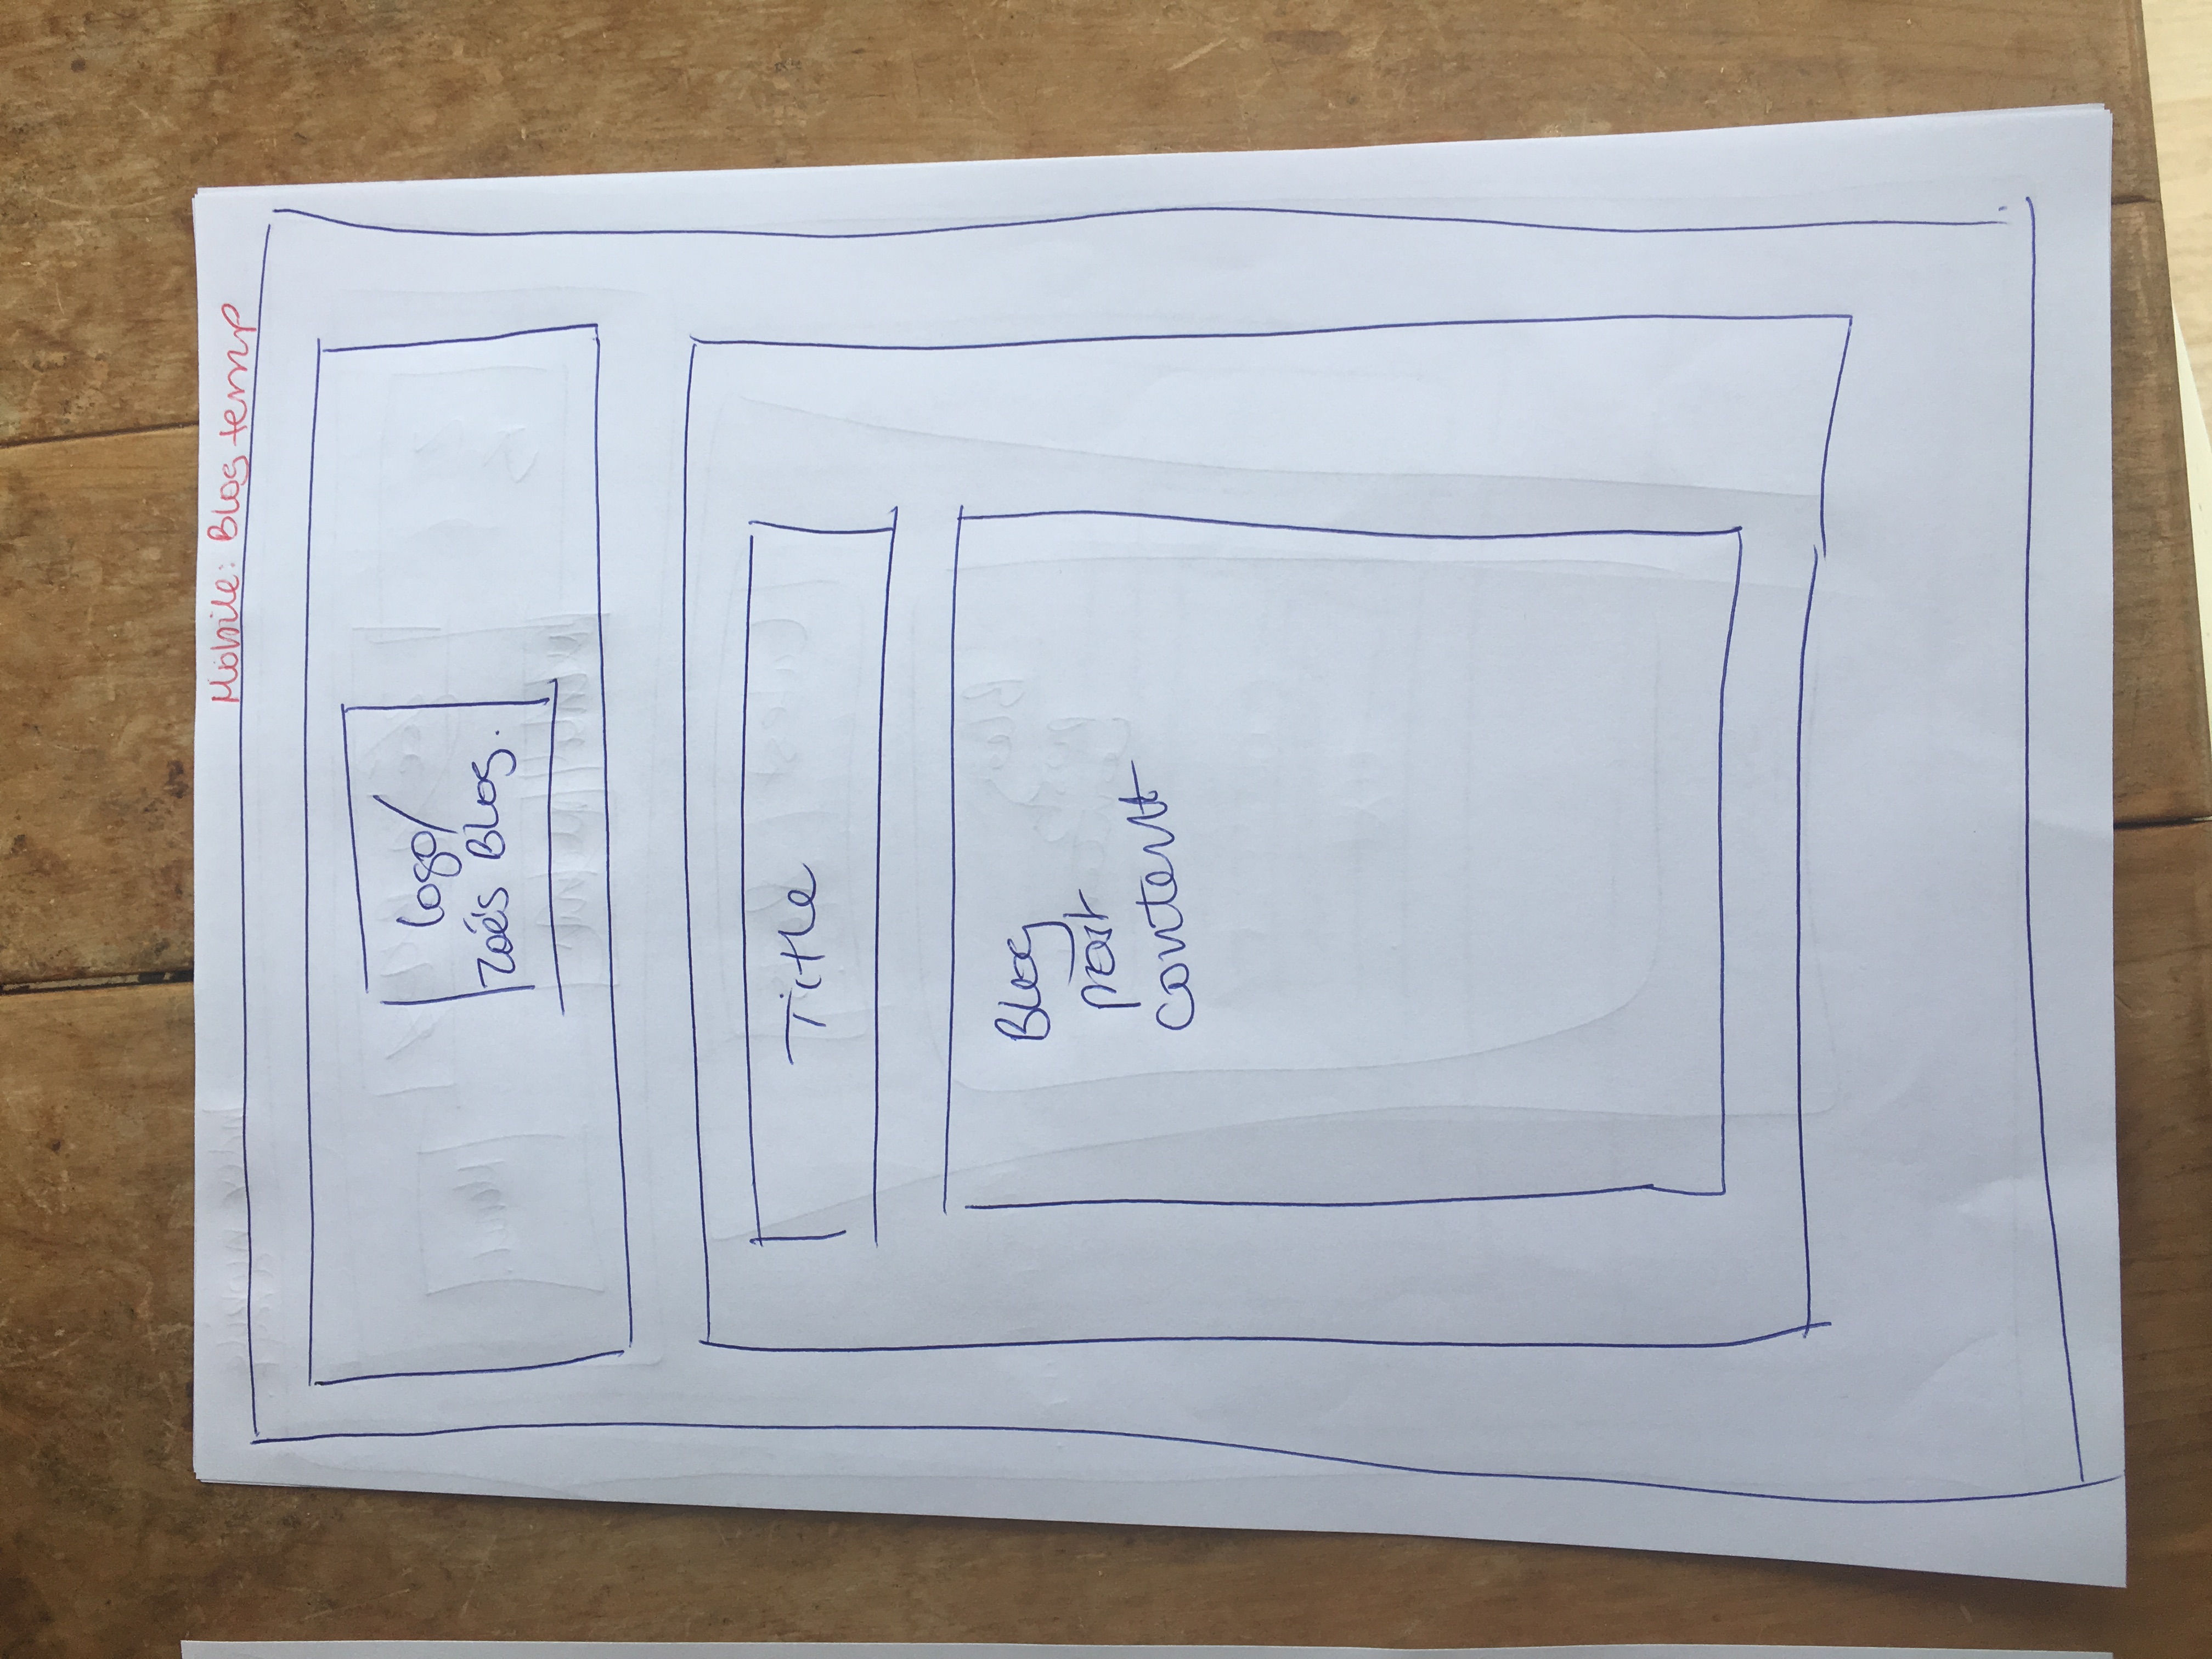 Mobile: Blog temp
Logo/
Zoë's Blog.
Title
Blog
post
content